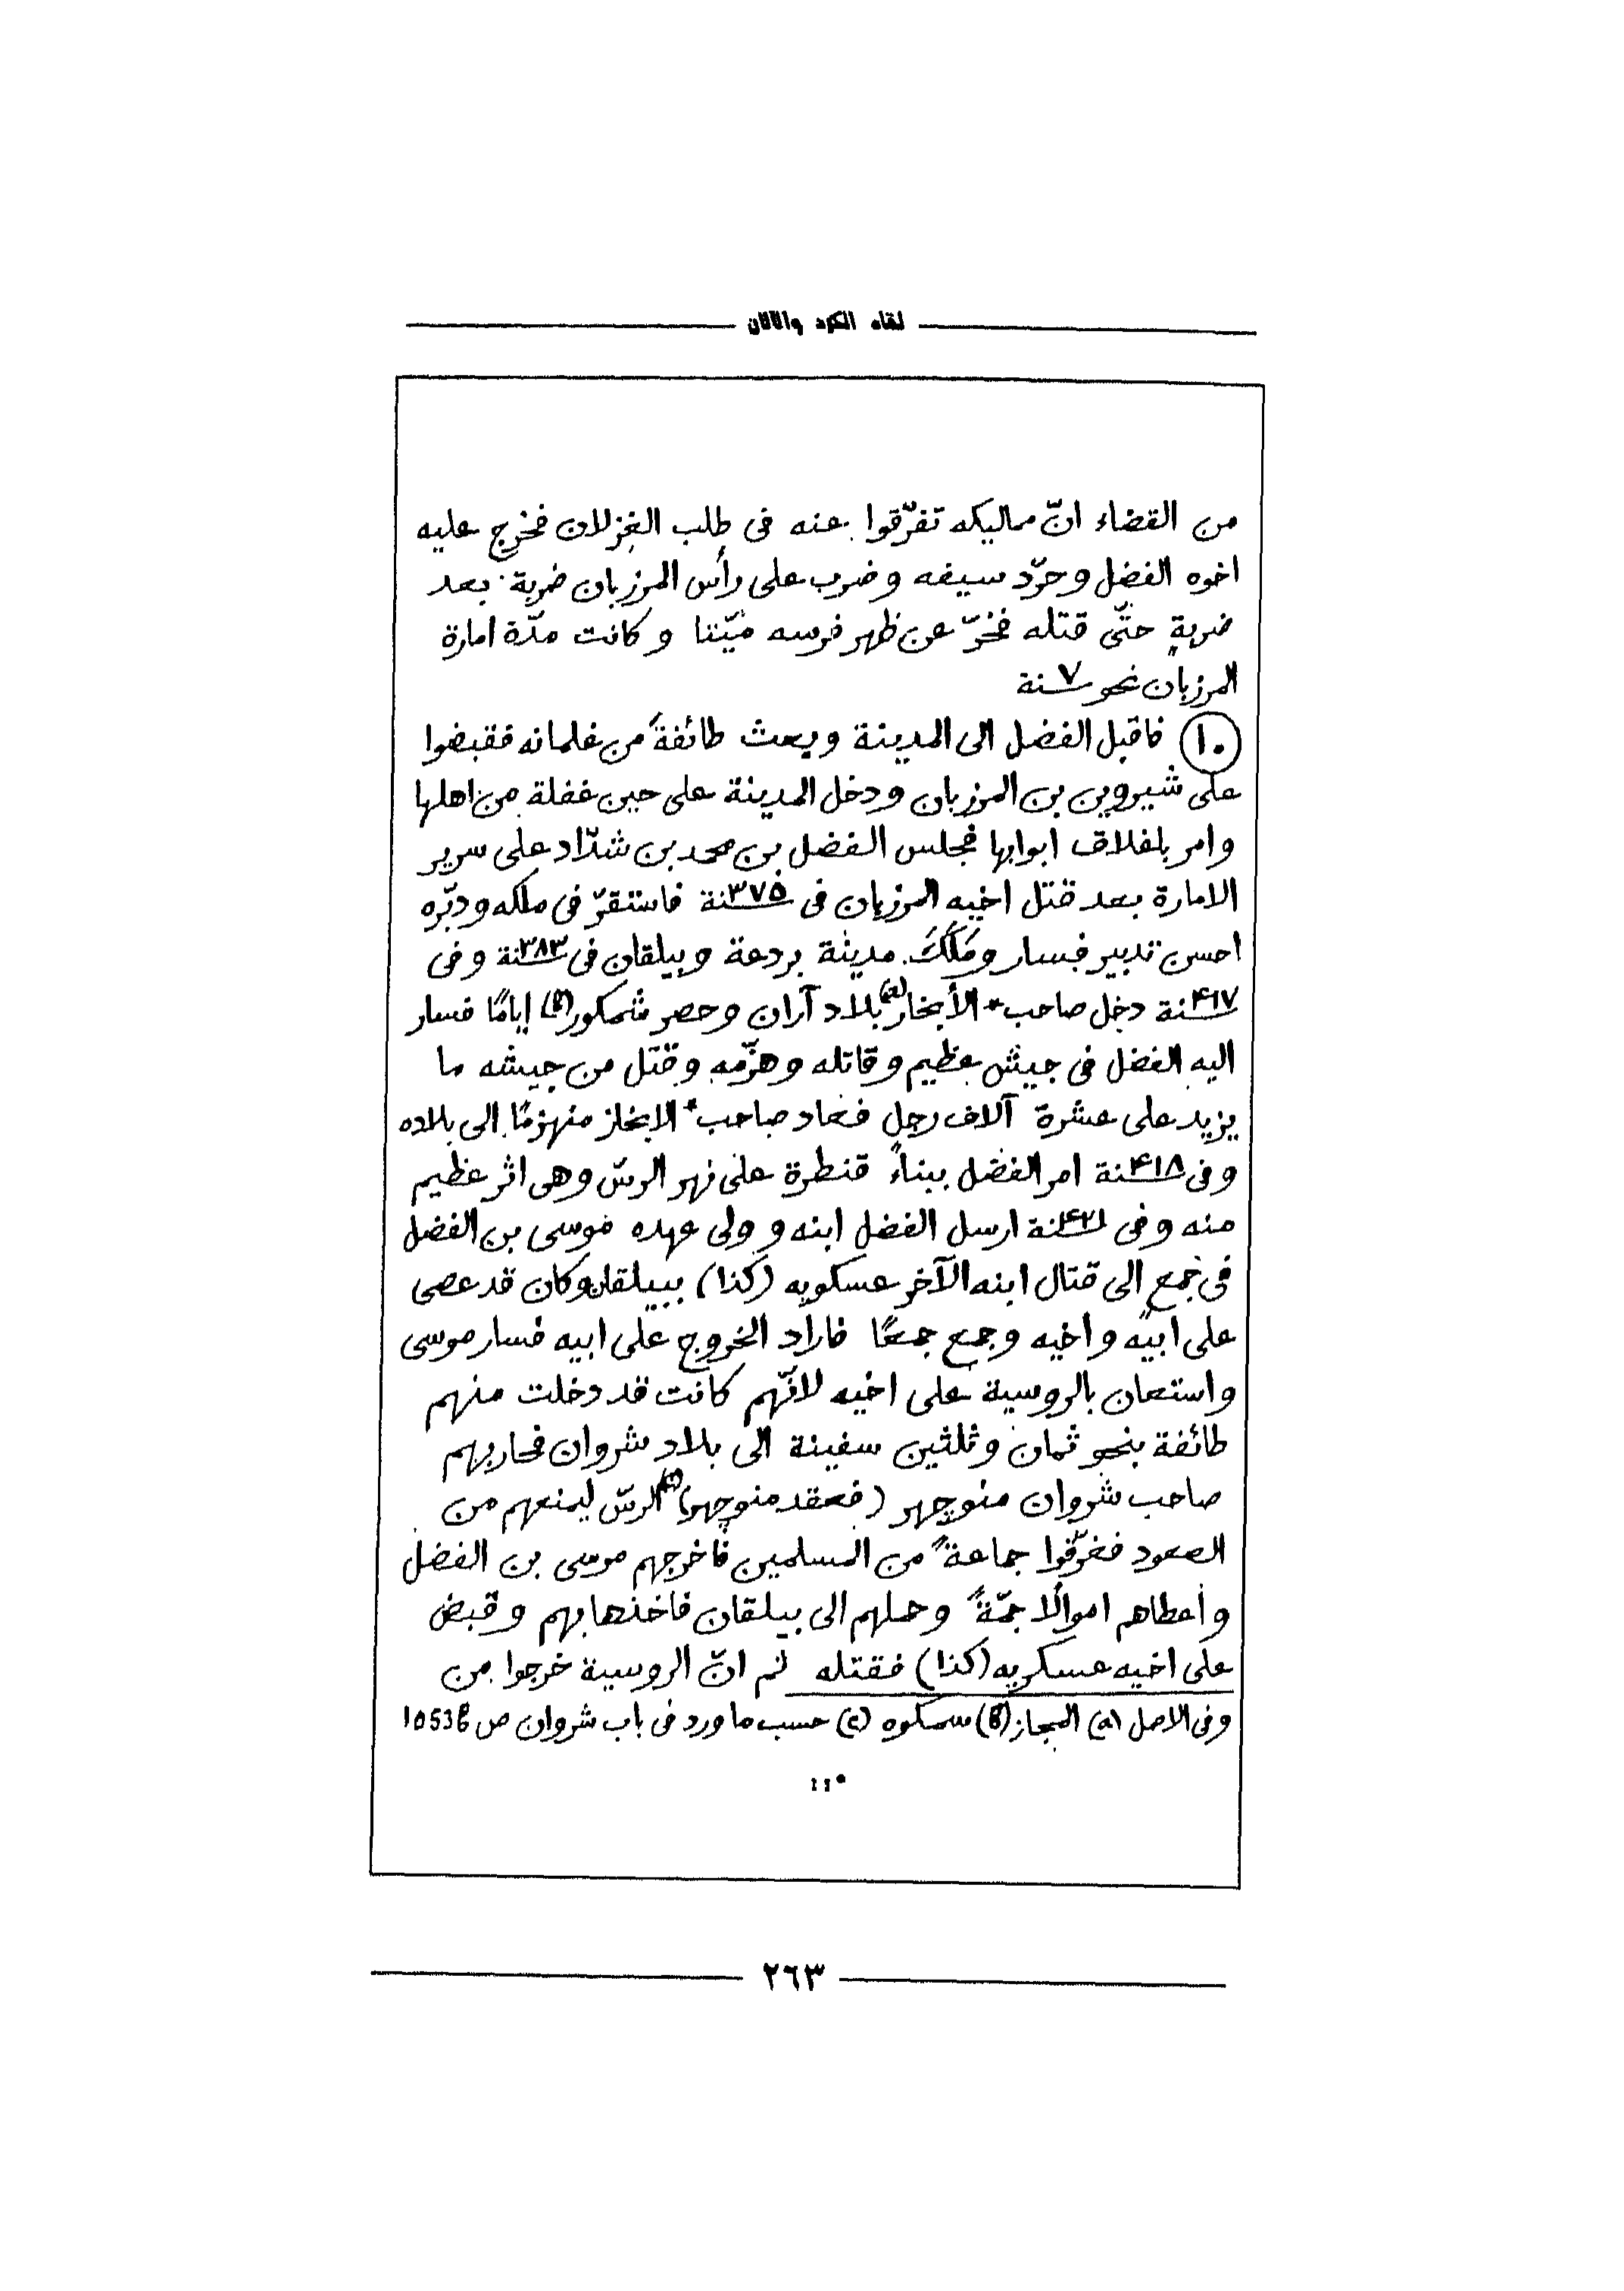 لقاء الكرد واللان
من القضاء انّ مماليكه تفرّقوا عنه فى طلب الغزلان فخرج عليه
اخوه الفضل وجرّد سيفه وضرب على رأس المرزبان ضربة بعد
ضربةٍ حتّى قتله فخرّ عن ظهر فرسه ميّتا وكانت مدّة امارة
المرزبان نحو ٧ سنة
(١٠) فاقبل الفضل الى المدينة وبعث طائفةً من غلمانه فقبضوا
على شيروين بن المرزبان ودخل المدينة على حين غفلة من اهلها
وامر باغلاق ابوابها فجلس الفضل بن محمد بن شدّاد على سرير
الامارة بعد قتل اخيه المرزبان فى ٣٧٥ سنة فاستقرّ فى ملكه ودبّره
احسن تدبير فسار ومَلَكَ مدينة بردعة وبيلقان فى ٣٨٣ سنة وفى
۴١٧ سنة دخل صاحب* الأبخاز(a) بلاد آران وحصر شمكور(b) ايامًا فسار
اليه الفضل فى جيش عظيم وقاتله وهزّمه وقتل من جيشه ما
يزيد على عشرة آلاف رجل فعاد صاحب* الابخاز منهزمًا الى بلاده
وفى ۴١٨ سنة امر الفضل ببناءً قنطرة على نهر الرسّ وهى اثر عظيم
منه وفى ۴٢١ سنة ارسل الفضل ابنه و ولى عهده موسى بن الفضل
فى جمعٍ الى قتال ابنه الآخر عسكويه (كذا) ببيلقان وكان قد عصى
على ابيه واخيه وجمع جمعًا فاراد الخروج على ابيه فسار موسى
واستعان بالروسية على اخيه لانّهم كانت قد دخلت منهم
طائفة بنحو ثمان وثلثين سفينة الى بلاد شروان فحاربهم
صاحب شروان منوچهر (فعقد منوچهر)(c) الرسّ ليمنعهم من
الصعود فغرّقوا جماعةً من المسلمين فاخرجهم موسى بن الفضل
واعطاهم اموالًا جمّةً وحملهم الى بيلقان فاخذها بهم وقبض
على اخيه عسكريه (كذا) فقتله ثم انّ الروسية خرجوا من
وفى الاصل (a) البجاز (b) سمكوه (c) حسب ما ورد فى باب شروان ص 1053b
٢٦٣